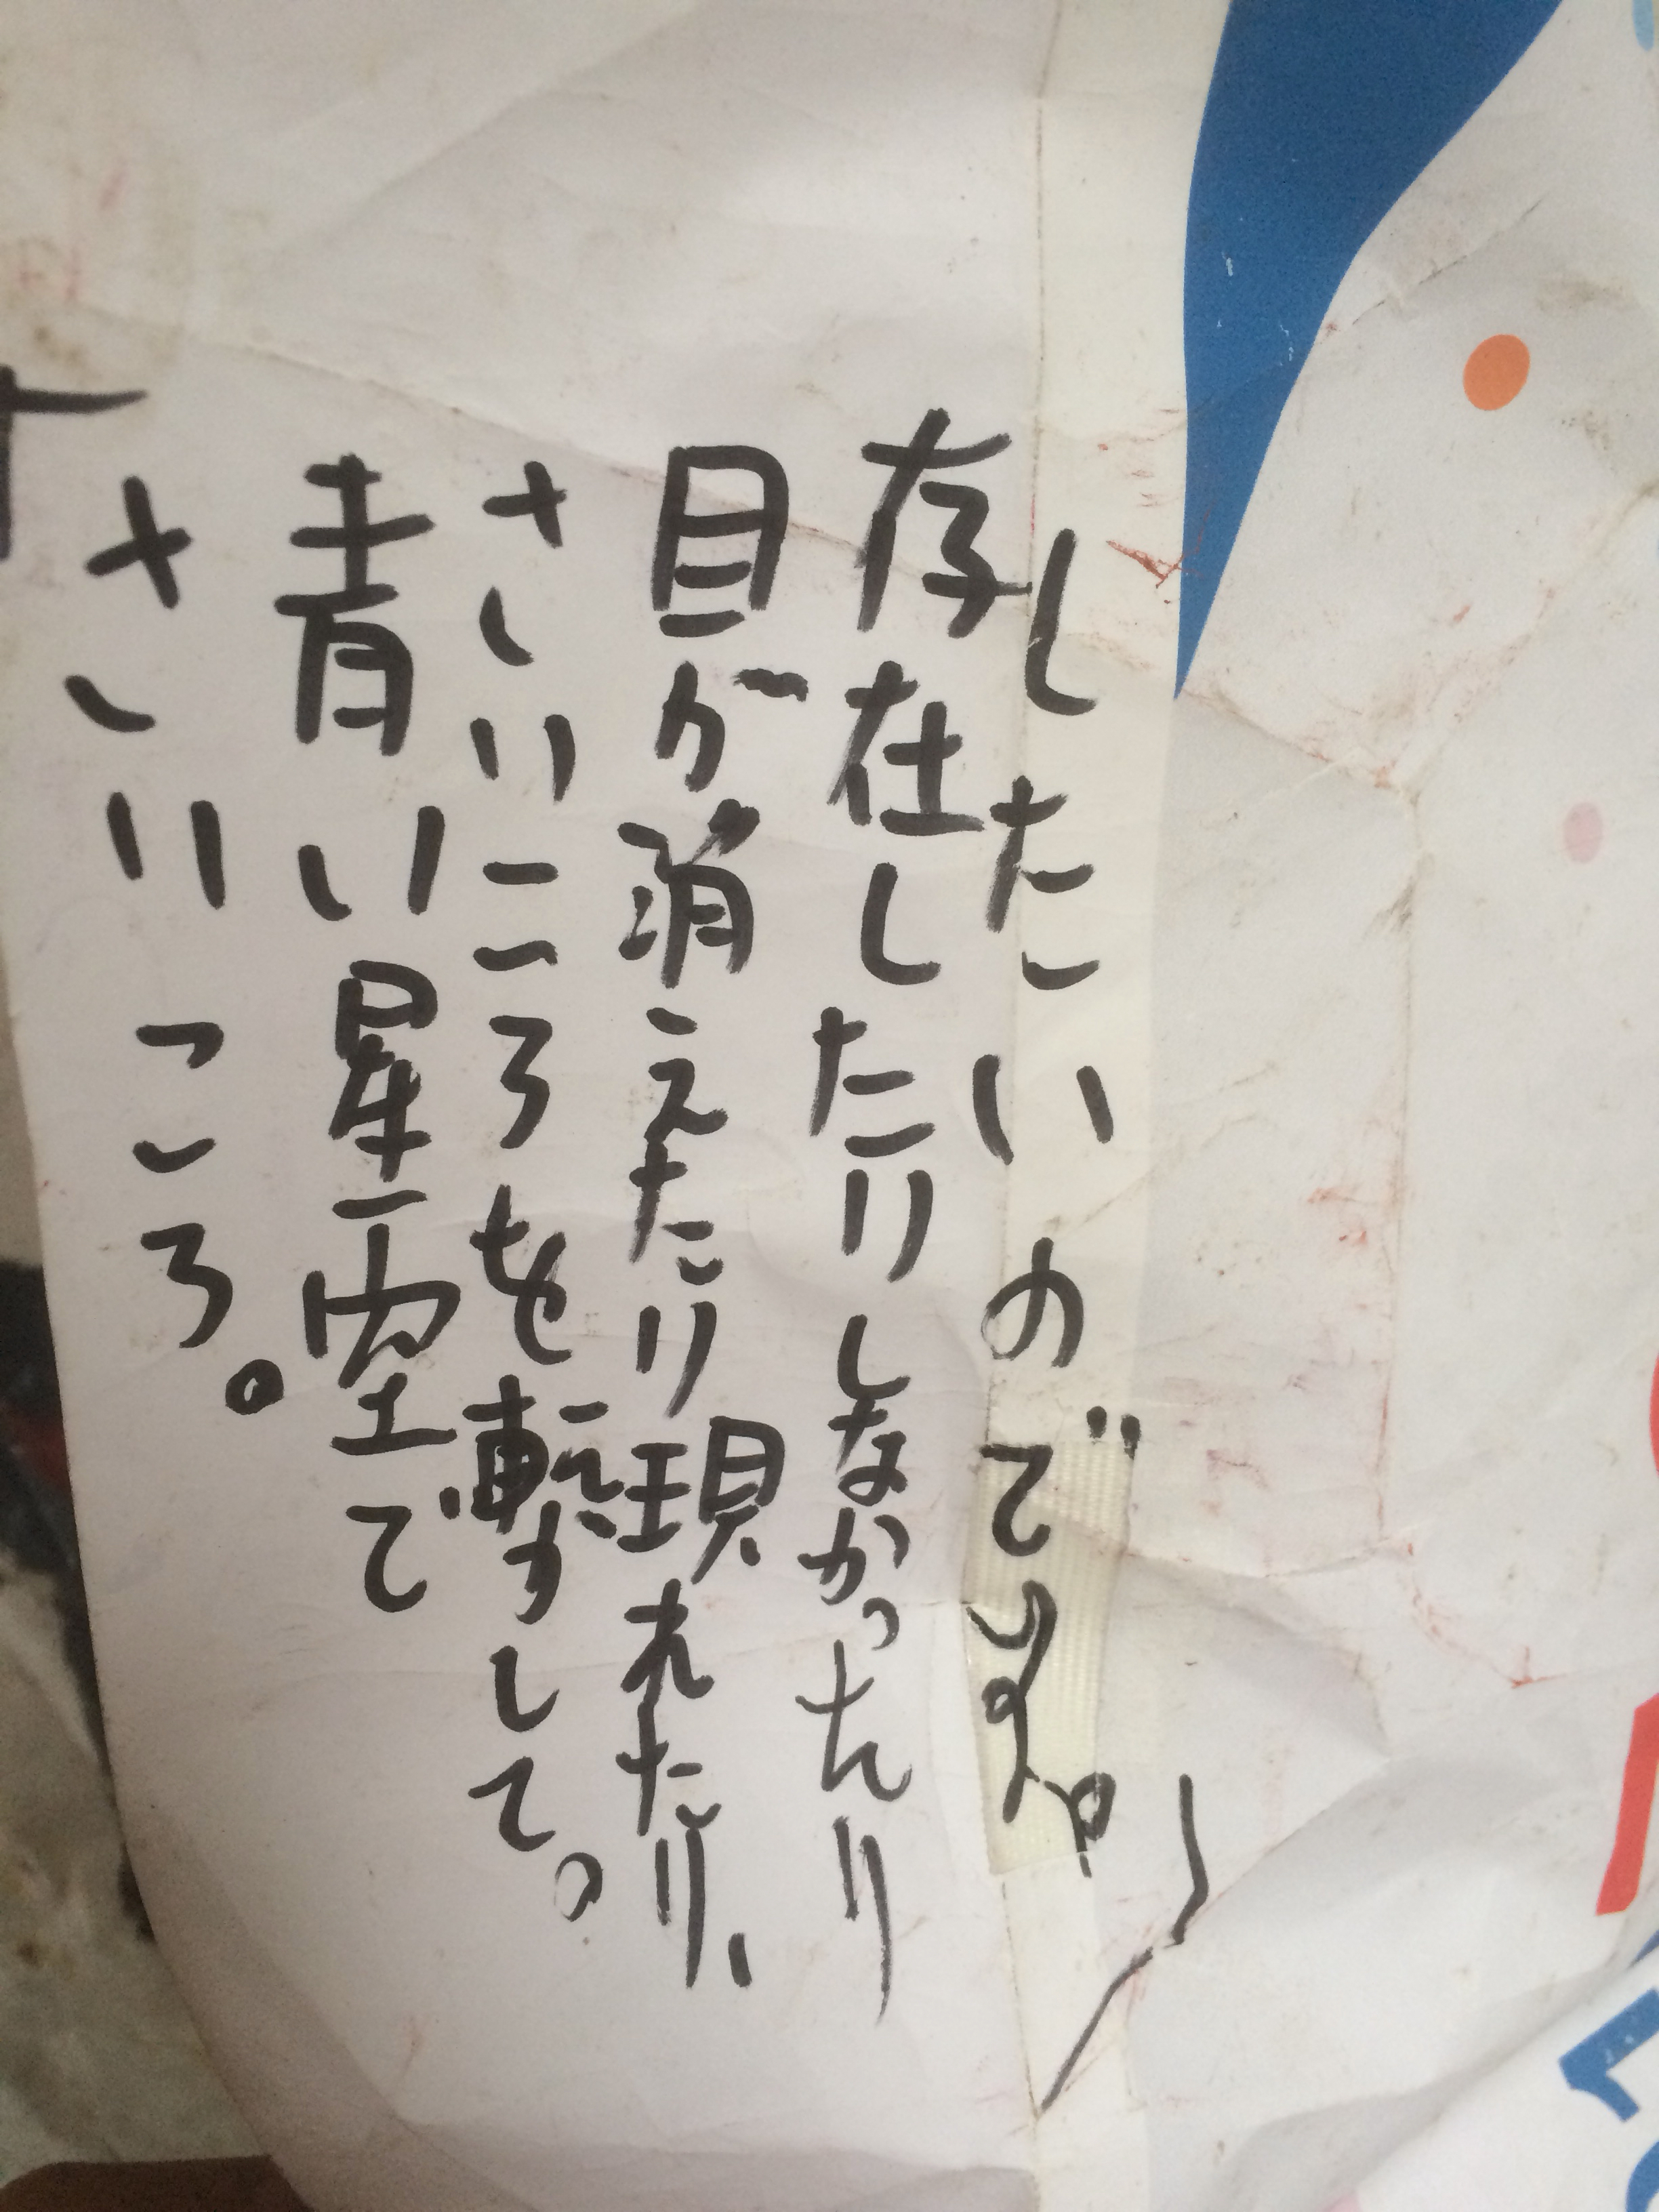 したいのですが
存在したりしなかったり
目が消えたり現れたり、
さいころを転がして。
青い星空で
さいころ。